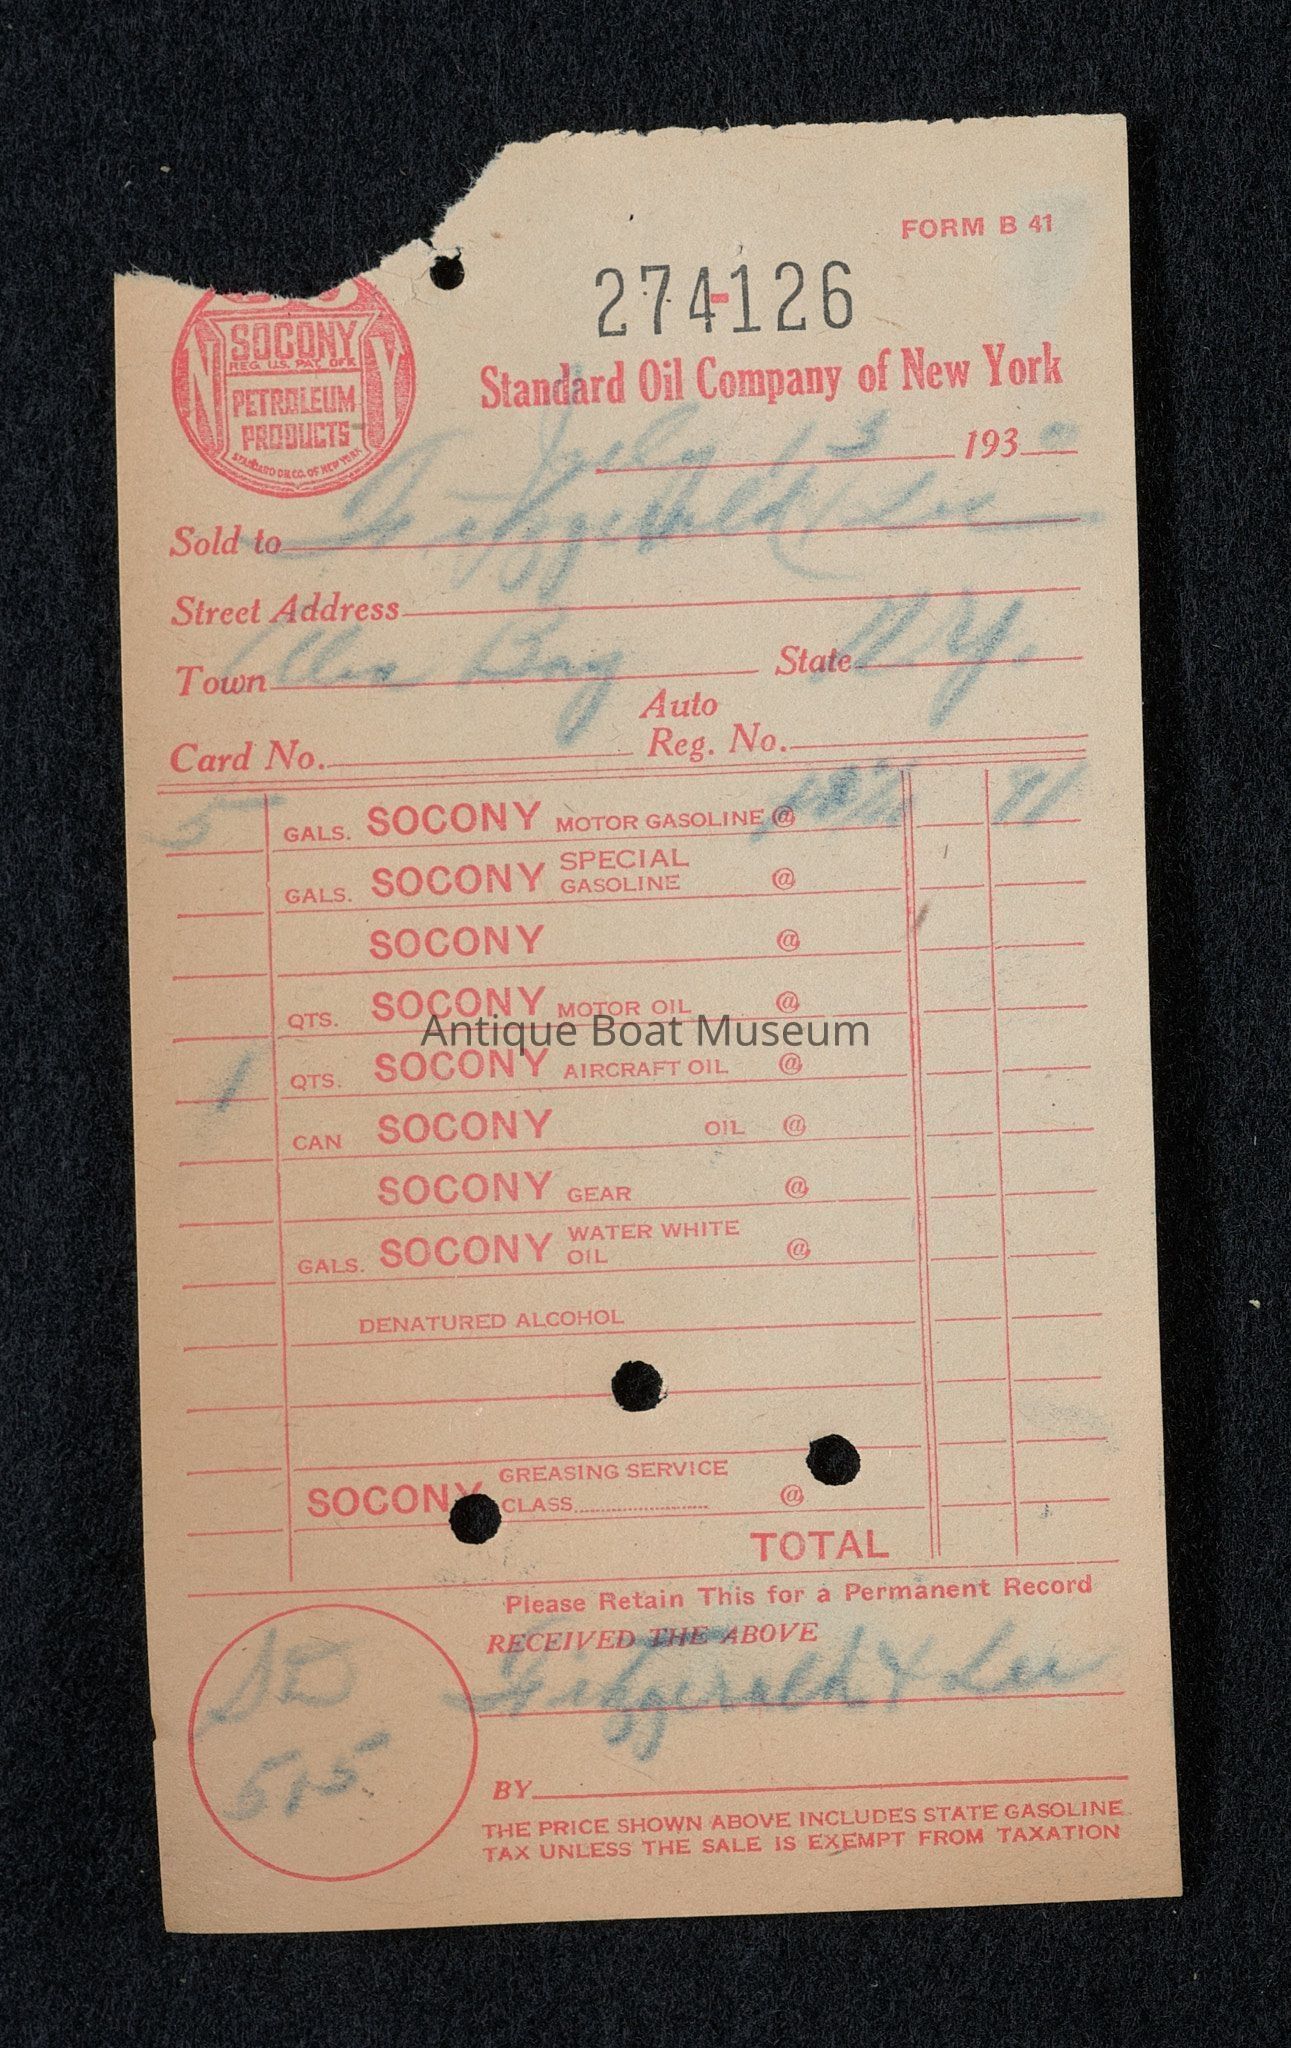 FORM B 41
274-126
SOCONY
REG. U.S. PAT. OFF.
PETROLEUM
PRODUCTS
STANDARD OIL CO. OF NEW YORK
Standard Oil Company of New York
July 13 193
Sold to Fitzgerald & Lee
Street Address
Town Alex Bay State N.Y.
Auto
Card No. Reg. No.
5 GALS. SOCONY MOTOR GASOLINE @ 91
GALS. SOCONY SPECIAL GASOLINE @
SOCONY @
QTS. SOCONY MOTOR OIL @
Antique Boat Museum
1 QTS. SOCONY AIRCRAFT OIL @
CAN SOCONY OIL @
SOCONY GEAR @
GALS. SOCONY WATER WHITE OIL @
DENATURED ALCOHOL
GREASING SERVICE
SOCONY CLASS @
TOTAL
Please Retain This for a Permanent Record
RECEIVED THE ABOVE
Fitzgerald & Lee
515
BY
THE PRICE SHOWN ABOVE INCLUDES STATE GASOLINE
TAX UNLESS THE SALE IS EXEMPT FROM TAXATION